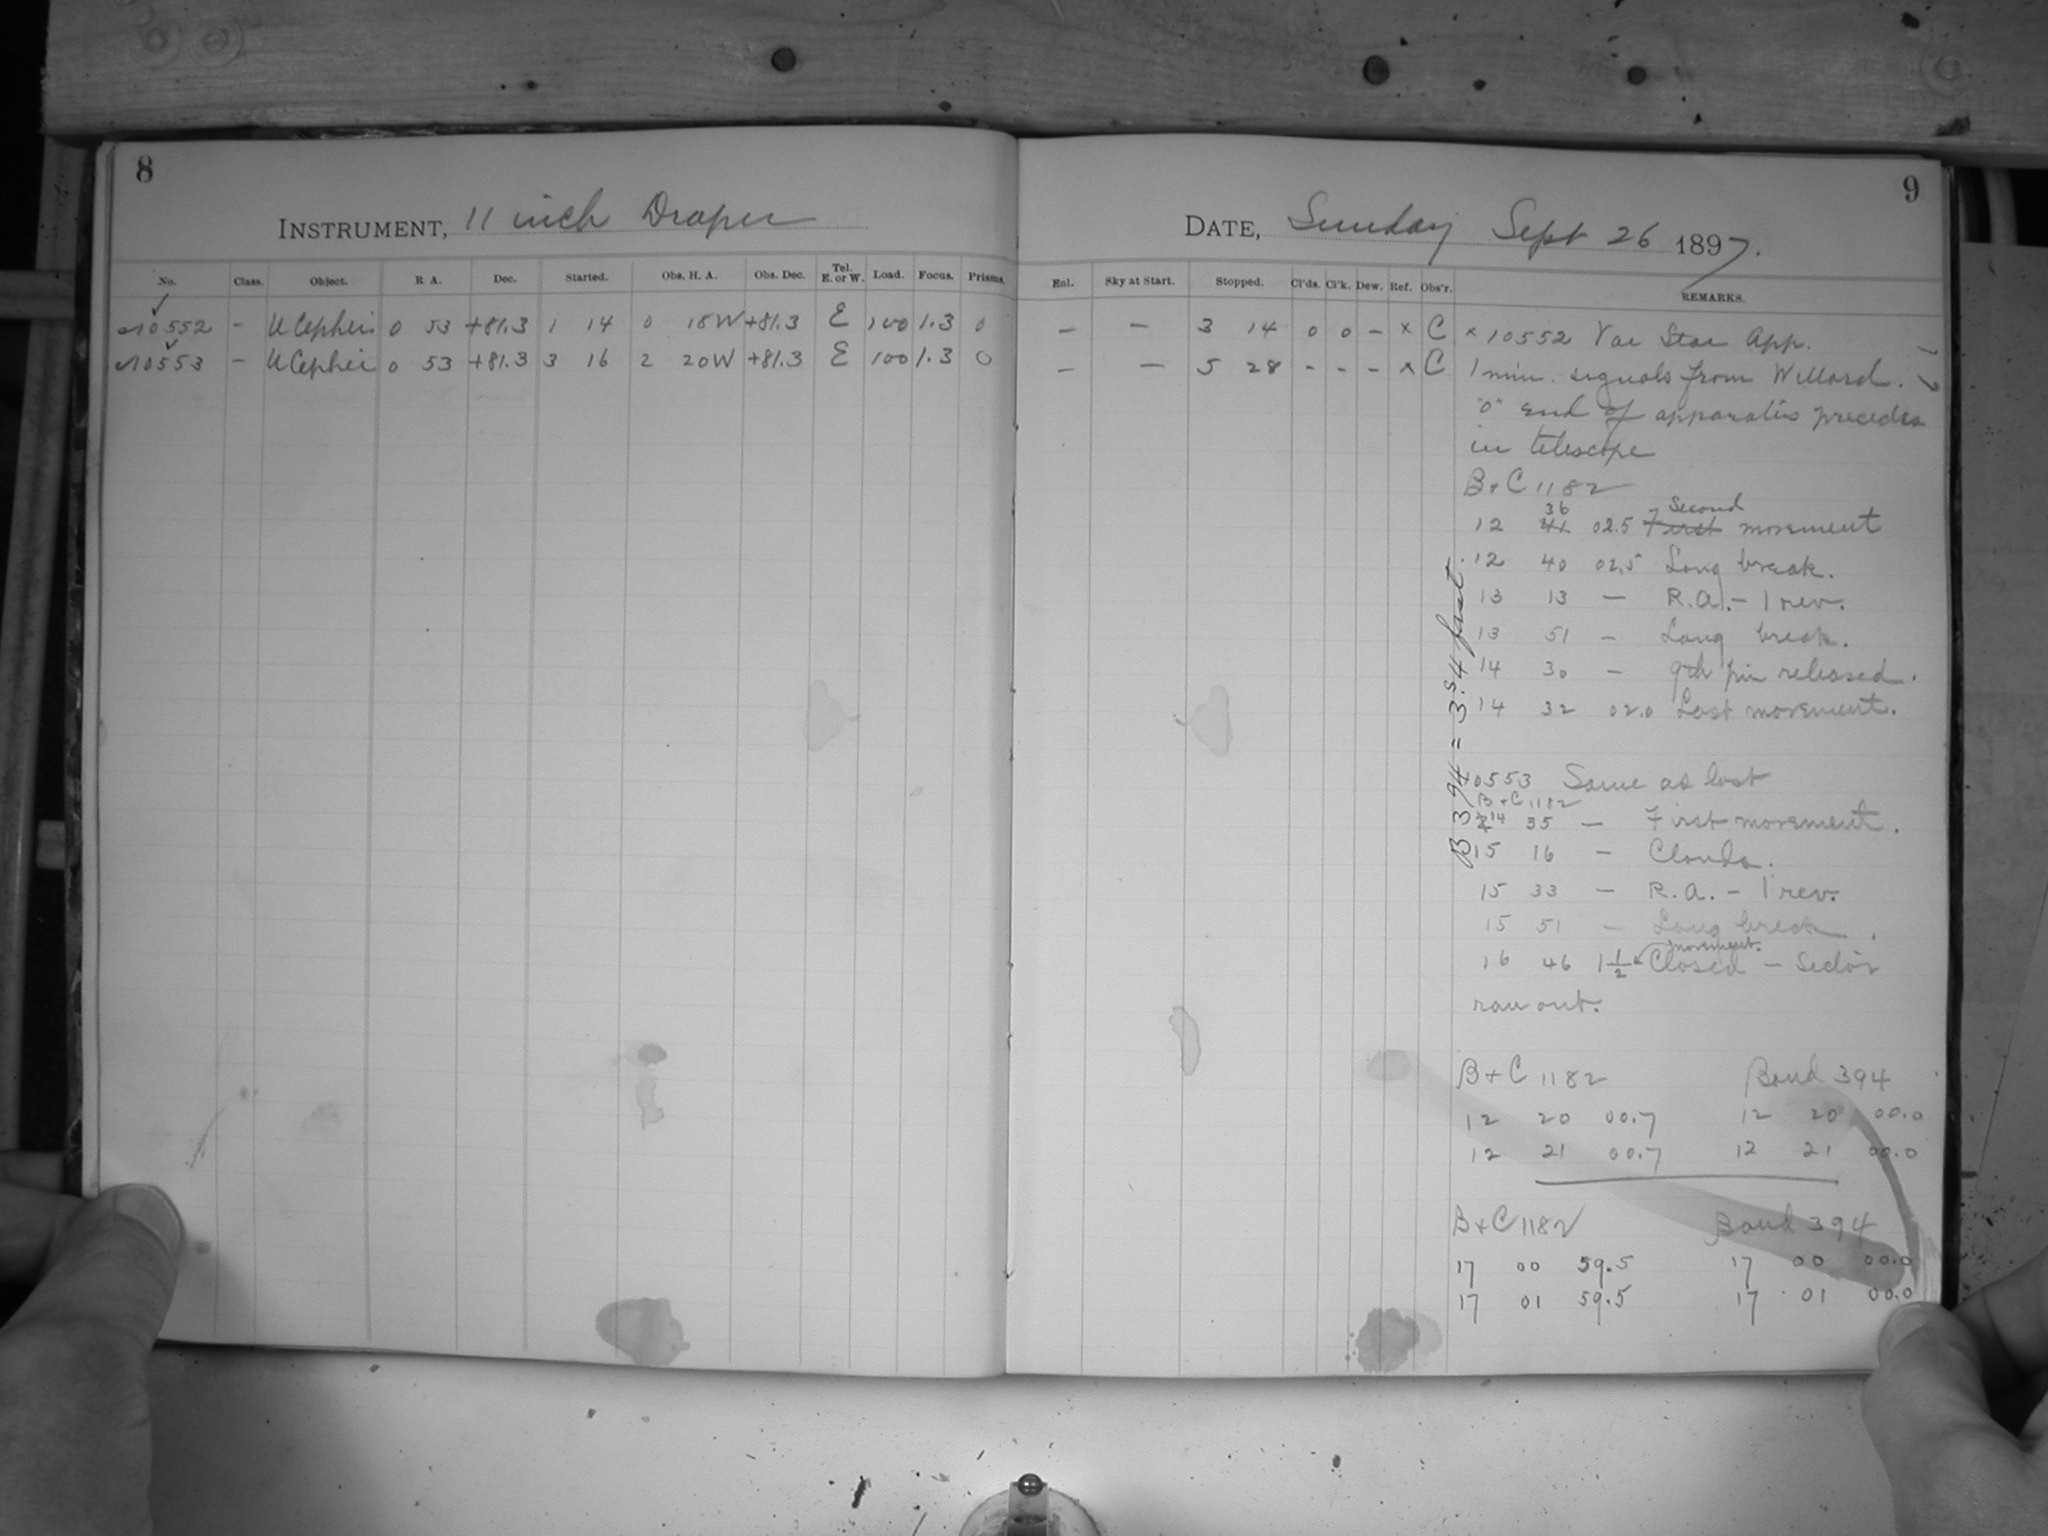 8
INSTRUMENT, 11 inch Draper
No. Class. Object. R A. Dec. Started. Obs. H. A. Obs. Dec. Tel. E. or W. Load. Focus. Prisms.
✓10552 - U Cephei 0 53 +81.3 1 14 0 18W +81.3 E 100 1.3 0
✓10553 - U Cephei 0 53 +81.3 3 16 2 20W +81.3 E 100 1.3 0
9
DATE, Sunday Sept 26 1897.
Enl. Sky at Start. Stopped. Cl'ds. Cl'k. Dew. Ref. Obs'r. REMARKS.
- - 3 14 0 0 - × C × 10552 Var Star App.
- - 5 28 - - - × C 1 min. signals from Willard.
"0" end of apparatus precedes
in telescope
B+C 1182
36 Second
12 41 02.5 First movement
12 40 02.5 Long break.
13 13 - R.A. - 1 rev.
13 51 - Long break.
14 30 - 9th pin released.
14 32 02.0 Last movement.
B 394 = 3.s4 fast.
10553 Same as last
B+C 1182
14 35 - First movement.
15 16 - Clouds.
15 33 - R.A. - 1 rev.
15 51 - Long break.
movement.
16 46 1 1/2 Closed - Sector
ran out.
B+C 1182 Bond 394
12 20 00.7 12 20 00.0
12 21 00.7 12 21 00.0
B+C 1182 Bond 394
17 00 59.5 17 00 00.0
17 01 59.5 17 01 00.0